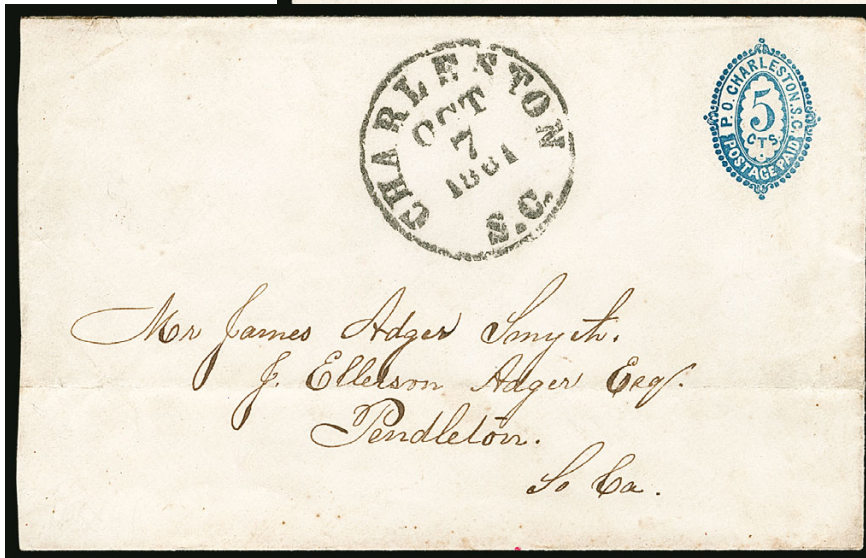 CHARLESTON
OCT
7
1861
S.C.
P.O. CHARLESTON. S.C.
5
CTS.
POSTAGE PAID
Mr James Adger Smyth.
J. Ellerson Adger Esq.
Pendleton.
So Ca.